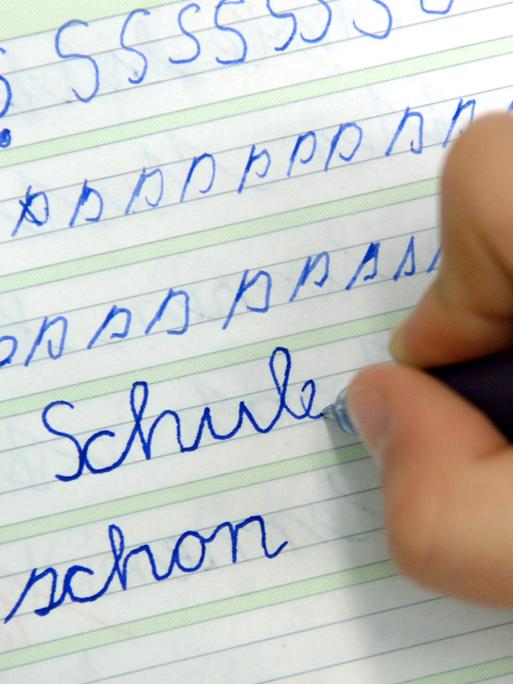 S S S S S S S
s s s s s s s s s
s s s s s s s
Schule
schon